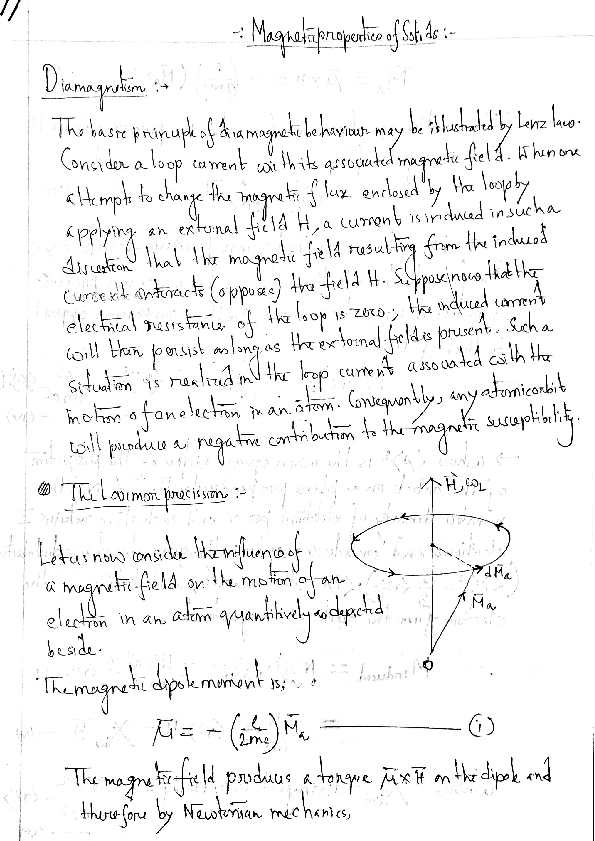 -: Magnetic properties of Solids :-
Diamagnetism :→
The basic principle of diamagnetic behaviour may be illustrated by Lenz law.
Consider a loop current with its associated magnetic field. When one
attempts to change the magnetic flux enclosed by the loop by
applying an external field H, a current is induced in such a
direction that the magnetic field resulting from the induced
current interacts (opposes) the field H. Suppose now that the
electrical resistance of the loop is zero; the induced current
will then persist as long as the external field is present. Such a
situation is realized in the loop current associated with the
motion of an electron in an atom. Consequently, any atomic orbit
will produce a negative contribution to the magnetic susceptibility.
The Larmor precission :-
H, ω_L
Let us now consider the influence of
a magnetic field on the motion of an
electron in an atom quantitively as depicted
beside.
dM̄_a
M̄_a
The magnetic dipole moment is,
μ̄ = - (e/2mc) M̄_a ——— (i)
The magnetic field produces a torque μ̄ x H̄ on the dipole and
therefore by Newtonian mechanics,